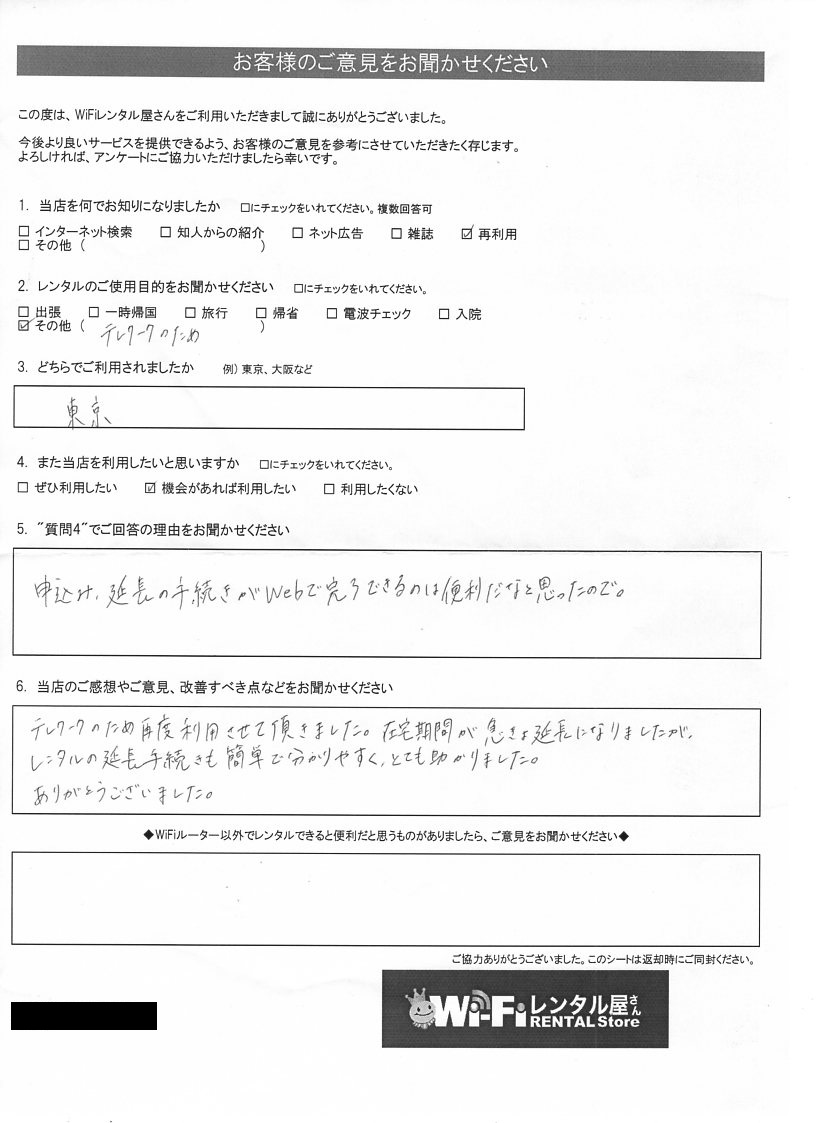 お客様のご意見をお聞かせください
この度は、WiFiレンタル屋さんをご利用いただきまして誠にありがとうございました。
今後より良いサービスを提供できるよう、お客様のご意見を参考にさせていただきたく存じます。
よろしければ、アンケートにご協力いただけましたら幸いです。
1. 当店を何でお知りになりましたか □にチェックをいれてください。複数回答可
□ インターネット検索 □ 知人からの紹介 □ ネット広告 □ 雑誌 ☑ 再利用
□ その他 ( )
2. レンタルのご使用目的をお聞かせください □にチェックをいれてください。
□ 出張 □ 一時帰国 □ 旅行 □ 帰省 □ 電波チェック □ 入院
☑ その他 ( テレワークのため )
3. どちらでご利用されましたか 例) 東京、大阪など
東京
4. また当店を利用したいと思いますか □にチェックをいれてください。
□ ぜひ利用したい ☑ 機会があれば利用したい □ 利用したくない
5. "質問4"でご回答の理由をお聞かせください
申込み、延長の手続きがWebで完了できるのは便利だなと思ったので。
6. 当店のご感想やご意見、改善すべき点などをお聞かせください
テレワークのため再度利用させて頂きました。在宅期間が急きょ延長になりましたが、
レンタルの延長手続きも簡単で分かりやすく、とても助かりました。
ありがとうございました。
◆WiFiルーター以外でレンタルできると便利だと思うものがありましたら、ご意見をお聞かせください◆
ご協力ありがとうございました。このシートは返却時にご同封ください。
Wi-Fiレンタル屋さん
RENTAL Store